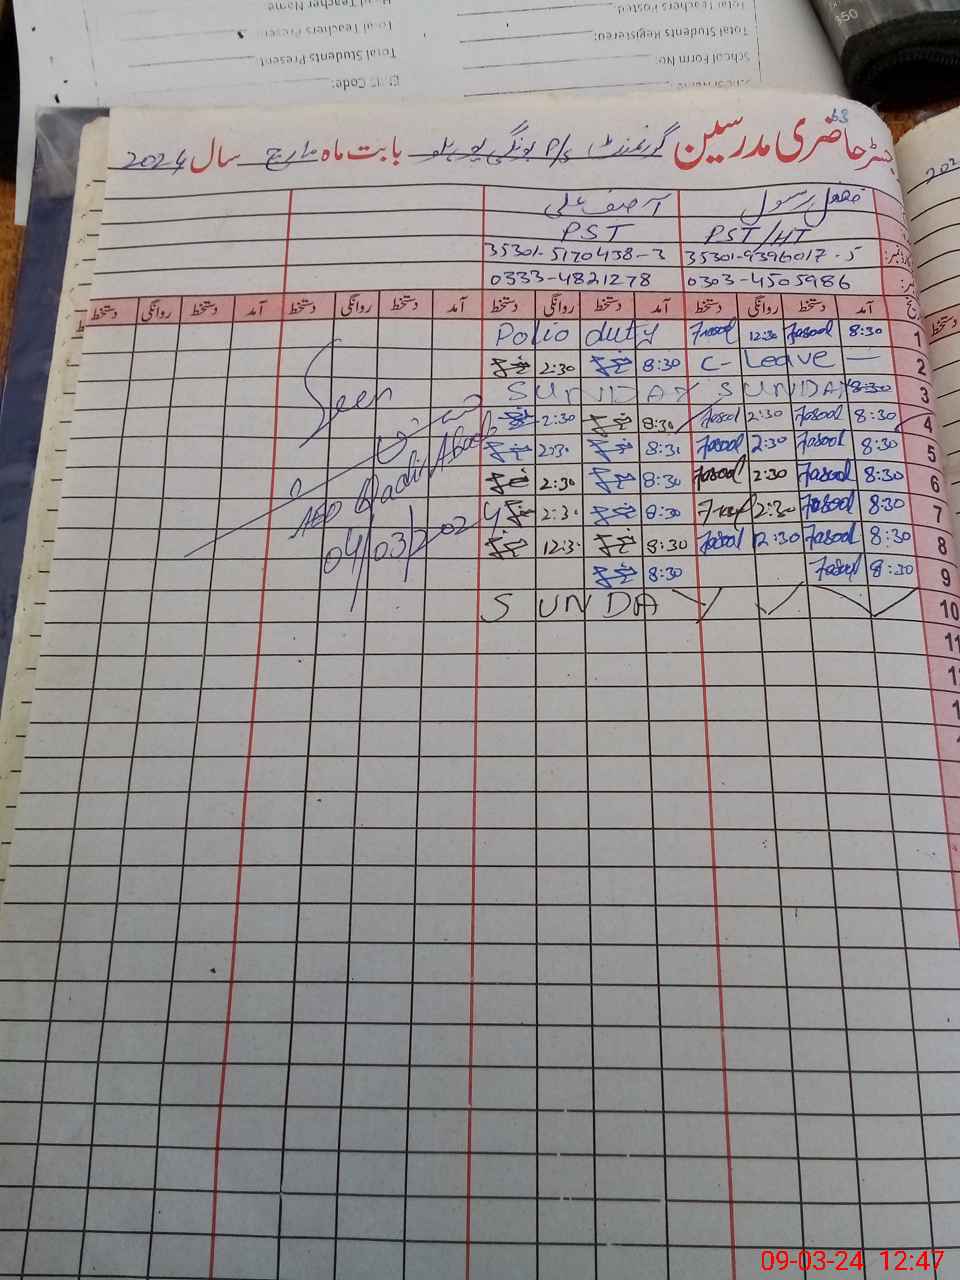 Head Teacher Name
Total Teachers Present
Total Students Present
Code:
Total Teachers Posted
Total Students Registered:
School Form No:
$50
63
رجسٹر حاضری مدرسین گورنمنٹ P/S بونگی بابت ماہ مارچ سال 2024
202
فضل رسول آصف علی
PST/HT PST
35301-9396017-5 35301-5170438-3
0303-4505986 0333-4821278
آمد دستخط روانگی دستخط آمد دستخط روانگی دستخط آمد دستخط روانگی دستخط آمد دستخط روانگی دستخط
1 8:30 Fasool 12:30 Fasool Polio duty
2 C- Leave — 8:30 2:30
3 8:30 SUNDAY SUNDAY
4 8:30 Fasool 2:30 Fasool 8:30 2:30
5 8:30 Fasool 2:30 Fasool 8:30 2:30
6 8:30 Fasool 2:30 Fasool 8:30 2:30
7 8:30 Fasool 2:30 8:30 2:30
8 8:30 Fasool 12:30 Fasool 8:30 12:30
9 8:30 Fasool 8:30
10 SUNDAY
11
Seen
AEO Qadir Abad
04/03/2024
09-03-24 12:47